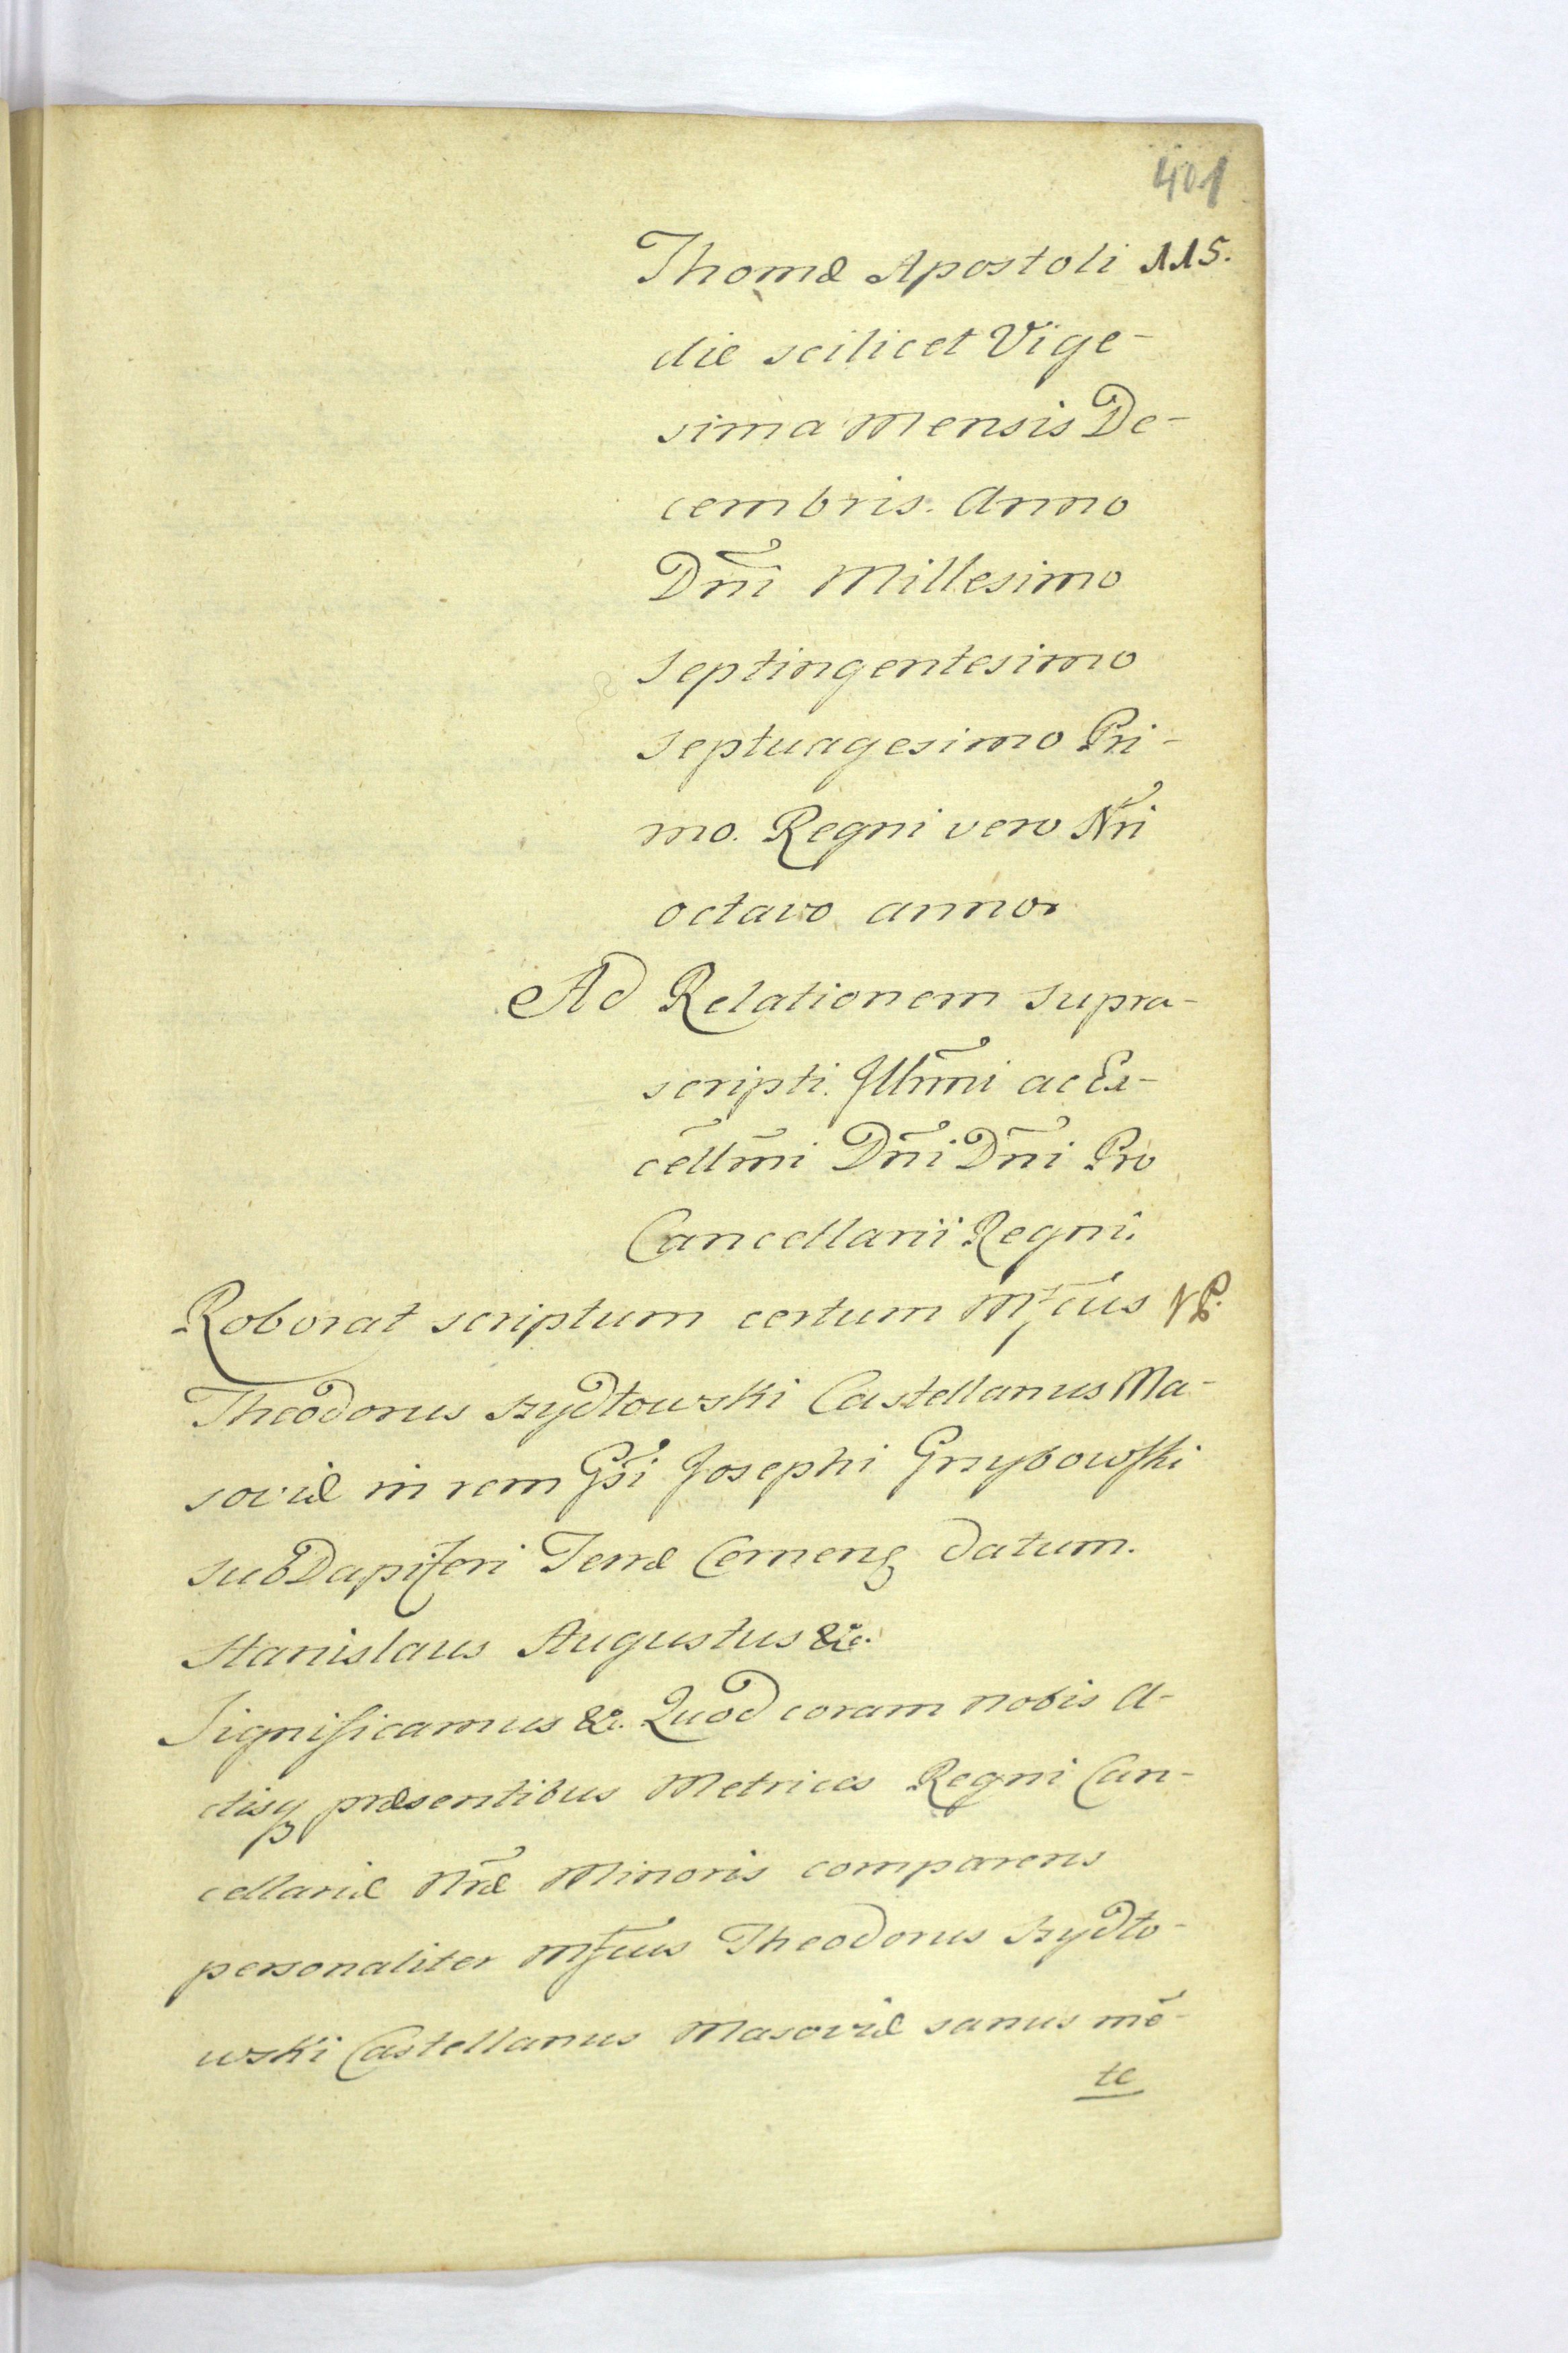 401
Thomæ Apostoli 115.
die scilicet Vige-
sima Mensis De-
cembris. Anno
Dñi Millesimo
Septingentesimo
Septuagesimo Pri-
mo. Regni vero Nr̃i
octavo anno.
Ad Relationem supra-
scripti. Illm̃i ac Ex-
cellm̃i Dñi Dñi Pro
Cancellarii Regni.
Roborat scriptum certum Mf̃cus
Theodorus Szydłowski Castellanus Ma-
soviæ in rem Gsi Josephi Grzybowski
subDapiferi Terræ Cernens datum.
Stanislaus Augustus &c.
Significamus &c. Quod coram nobis A-
ctisq præsentibus Metrices Regni Can-
cellariæ Nr̃æ Minoris comparens
personaliter Mf̃cus Theodorus Szydło-
wski Castellanus Masoviæ sanus mẽ-
te